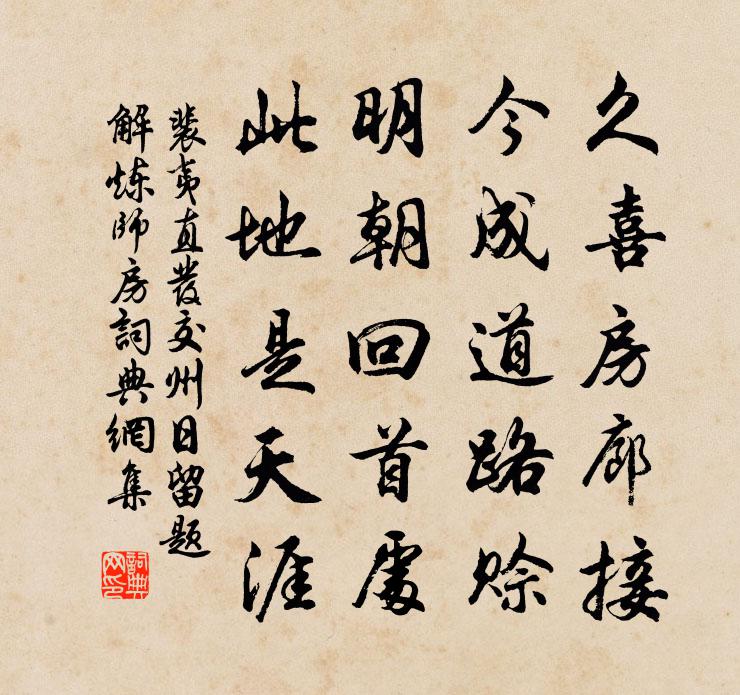 久喜房廊接
今成道路赊
明朝回首處
此地是天涯
裴夷直發交州日留题
解炼師房詞典網集
詞典网印